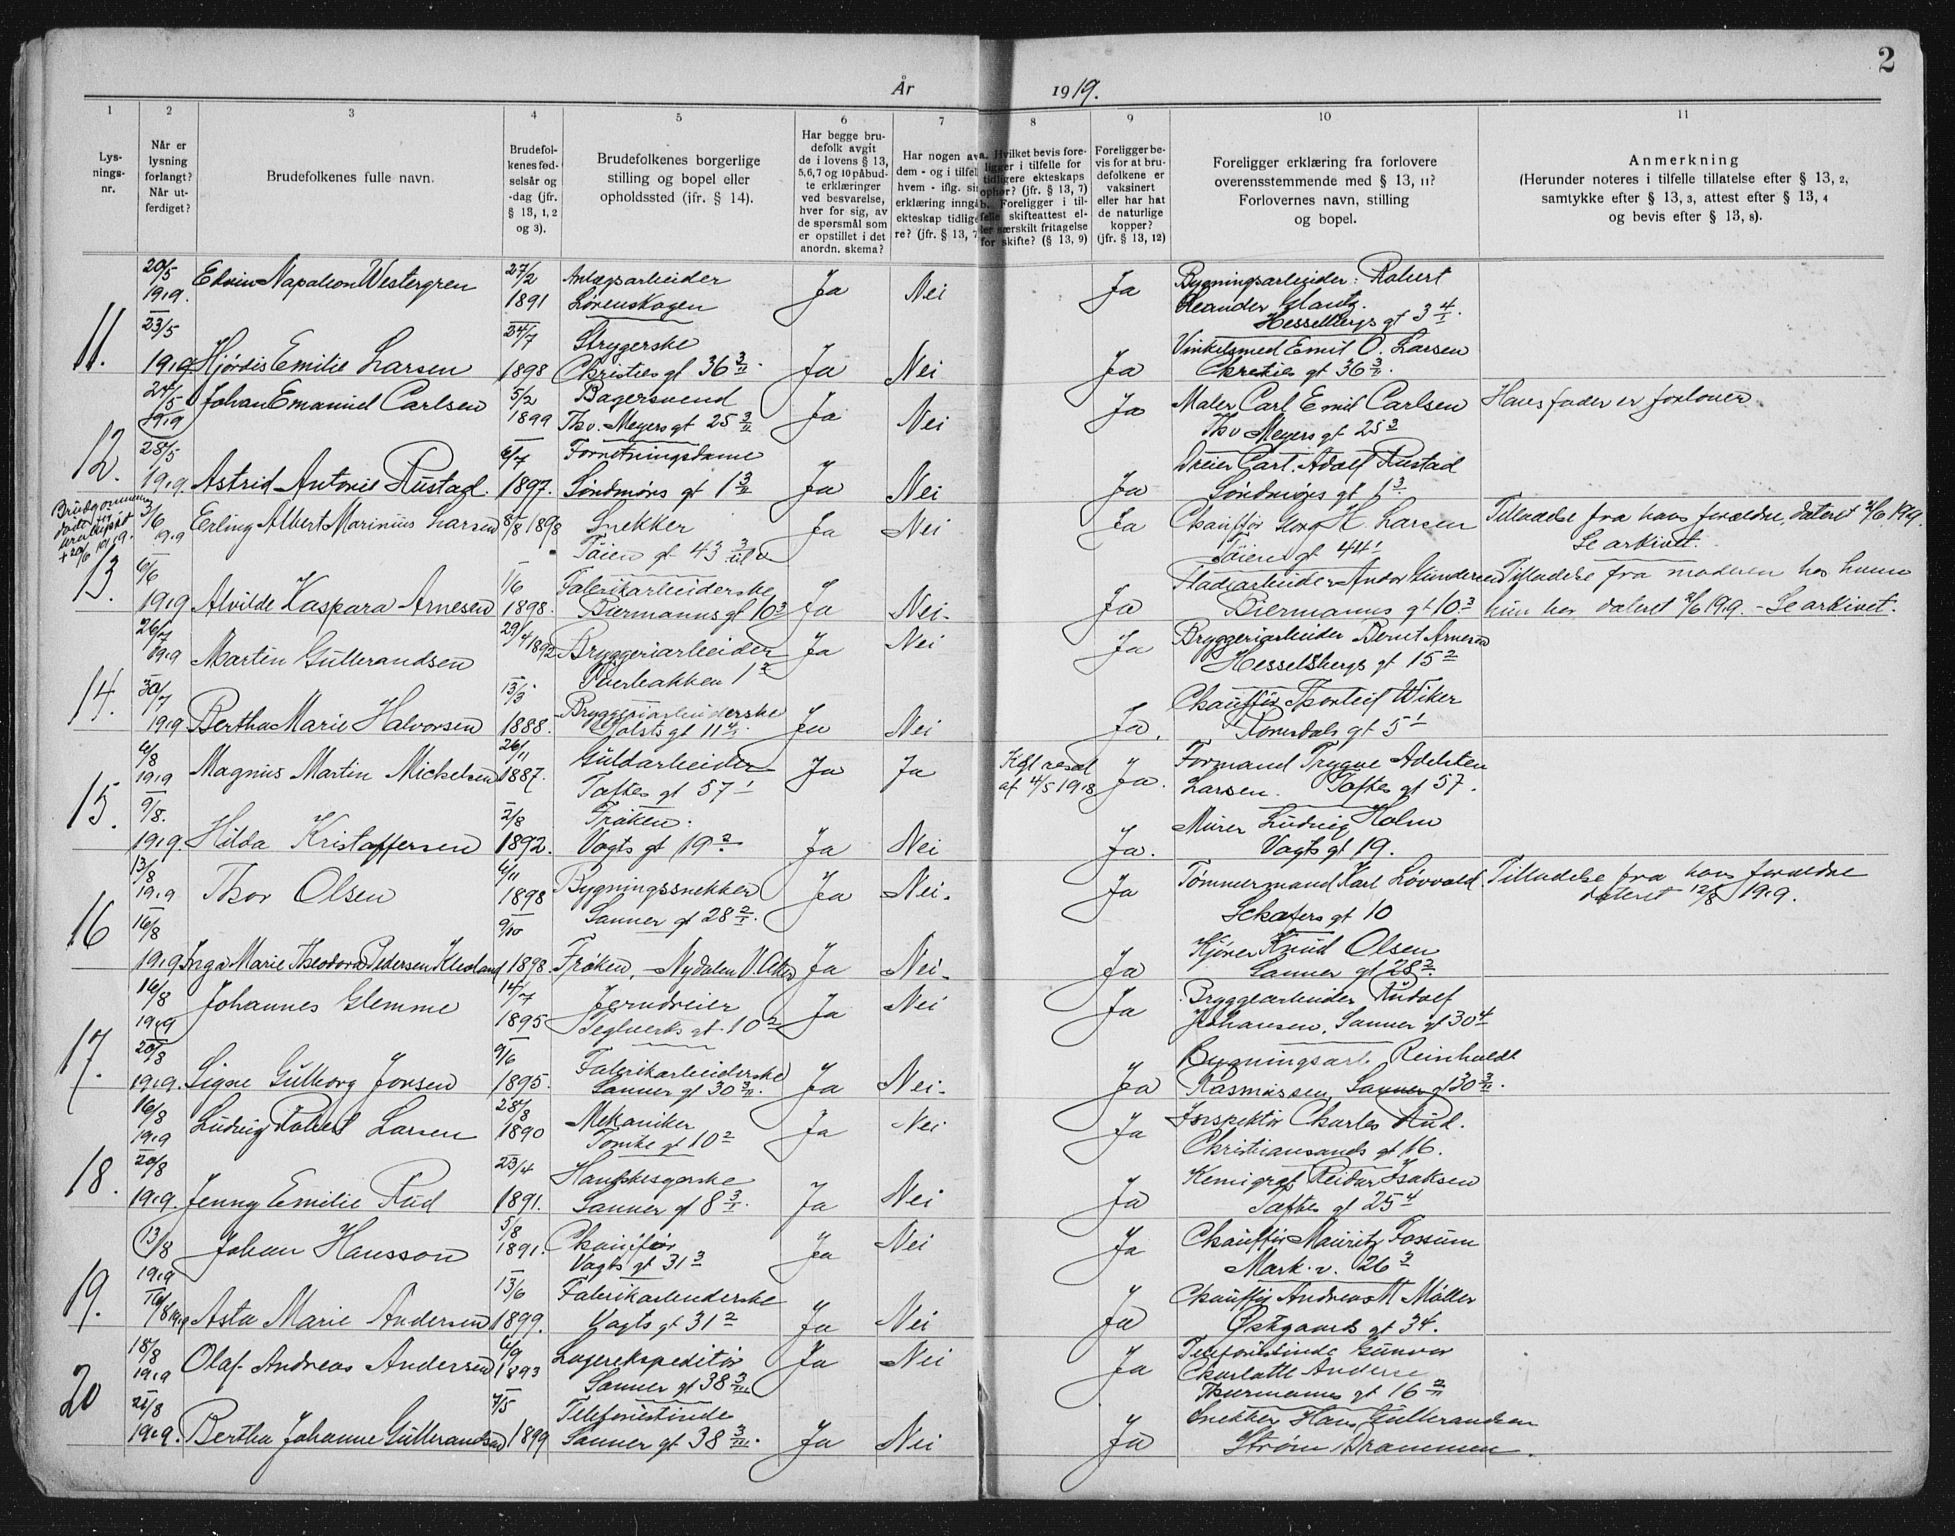 2
År 1919.
1 2 3 4 5 6 7 8 9 10 11
Lys-
nings-
nr.
Når er
lysning
forlangt?
Når ut-
ferdiget?
Brudefolkenes fulle navn.
Brudefol-
kenes fød-
selsår og
-dag (jfr.
§ 13, 1, 2
og 3).
Brudefolkenes borgerlige
stilling og bopel eller
opholdssted (jfr. § 14).
Har begge bru-
defolk avgit
de i lovens § 13,
5, 6, 7 og 10 påbud-
te erklæringer
ved besvarelse,
hver for sig, av
de spørsmål som
er opstillet i det
anordn. skema?
Har nogen av
dem - og i tilfel
hvem - iflg. sin
erklæring inngå
ekteskap tidlige
re? (jfr. § 13, 7
a. Hvilket bevis fore-
ligger i tilfelle for
tidligere ekteskaps
ophør? (jfr. § 13, 7)
b. Foreligger i til-
felle skifteattest el-
ler særskilt fritagelse
for skifte? (§ 13, 9)
Foreligger be-
vis for at bru-
defolkene er
vaksinert
eller har hat
de naturlige
kopper?
(jfr. § 13, 12)
Foreligger erklæring fra forlovere
overensstemmende med § 13, 11?
Forlovernes navn, stilling
og bopel.
Anmerkning
(Herunder noteres i tilfelle tillatelse efter § 13, 2,
samtykke efter § 13, 3, attest efter § 13, 4
og bevis efter § 13, 8).
11.
20/5 1919. Edvin Napoleon Westergren 27/2 1891 Anlægsarbeider Lørenskogen Ja Nei Ja Bygningsarbeider: Robert
Leander Glantz.
Hesselbergs gt 3 4/I.
23/5 1919 Hjørdis Emilie Larsen 24/7 1898 Strygerske Christies gt 36 3/II. Ja Nei Ja Vinkelsmed Emil O. Larsen
Christies gt 36 3/II.
12.
24/5 1919 Johan Emanuel Carlsen 5/2 1899 Bagersvend Thv. Meyers gt 25 3/II Ja Nei Ja Maler Carl Emil Carlsen Hans fader er forlover
Thv Meyers gt 25 3
28/5 1919. Astrid Antonie Rustad. 6/7 1897. Forretningsdame Søndmørs gt 1 3/II Ja Nei Ja Dreier Carl Adolf Rustad
Søndmørs gt 1 3.
13.
Brudgommen
3/6 1919 Erling Albert Marinius Larsen 8/8 1898 Snekker Tøien gt 43 3 Ja Nei Ja Chauffør Georg H. Larsen Tilladelse fra hans forældre, dateret 2/6 1919.
Tøien gt 44 1 Se arkivet.
6/6 1919 Alvilde Kaspara Arnesen 1/6 1898. Fabrikarbeiderske Biermanns gt 10 3 Ja Nei. Ja Andor Gundersen Tilladelse fra moderen hos hvem
Biermanns gt 10. 3 hun bor dateret 2/6 1919. - Se arkivet.
14.
26/7 1919 Martin Gulbrandsen 29/4 1892 Bryggeriarbeider 1 2 Ja Nei Ja Bryggeriarbeider Bernt Arnesen
Hesselbergs gt 15 2
30/7 1919 Bertha Marie Halvorsen 13/3 1888. Bryggeriarbeiderske Holsts gt 11 4/I. Ja Nei Ja. Chauffør Thorleif Wiker
Romsdals gt 5 1
15.
6/8 1919 Magnus Martin Mickelsen 26/11 1887. Guldarbeider Toftes gt 57 1 Ja Ja Kgl resol
af 4/5 1918 Ja. Formand Trygve Adelsten
Larsen. Toftes gt 57.
9/8. 1919. Hilda Kristoffersen 2/8 1892. Frøken. Vogts gt 19 2. Ja Nei Ja. Murer Ludvig Holm
Vogts gt 19.
16
13/8 1919 Thor Olsen 6/11 1898 Bygningssnekker Sanner gt 28 2/I. Ja Nei. Ja Tømmermand Karl Løvvold Tilladelse fra hans forældre
Schafers gt 10 dateret 12/8 1919.
16/8 1919 Inga Marie Theodora Pedersen Kleoland 9/10 1898. Frøken, Nydalen V. Aker Ja Nei. Ja Kjører Knud Olsen
Sanner gt 28 2.
17.
16/8 1919 Johannes Glemme 14/7 1895 Jerndreier Teglverks gt 10 2 Ja Nei Ja Bryggearbeider Rudolf
Johansen. Sanner gt 30 4
20/8 1919. Signe Gulborg Jonsen 9/6 1895. Fabrikarbeiderske Sanner gt 30 3/II. Ja Nei. Ja Bygningsarb. Reinholdt
Rasmussen, Sanner gt 30 3/II.
18.
16/8 1919 Ludvig Robert Larsen 28/8 1890 Mekaniker Tomte gt 10 2 Ja Nei Ja Inspektør Charles Rud.
Christiansands gt 16.
20/8 1919. Jenny Emilie Rud 23/4 1891. Hanskesyerske Sanner gt 8 3/I. Ja Nei Ja Kemigraf Reidar Isaksen
Toftes gt 25 4
19.
13/8 1919 Johan Hansson 5/8 1891. Chauffør Vogts gt 31 3 Ja Nei Ja Chauffør Mauritz Fossum
Mark. v. 26 3
16/8 1919 Asta Marie Andersen 13/6 1899. Fabrikarbeiderske Vogts gt 31 2 Ja Nei Ja Chauffør Andreas M Møller
Østgaards gt 34.
20
18/8 1919 Olaf Andreas Andersen 6/9 1893 Lagerekspeditør Sanner gt 38 3/III Ja Nei Ja Telefonistinde Gunvor
Charlotte Andersen
Thurmanns gt 16 2/II
21/8 1919. Bertha Johanne Gulbrandsen 7/5 1899 Telefonistinde Sanner gt 38 3/III. Ja Nei Ja Snekker Hans Gulbrandsen
Strøm Drammen.